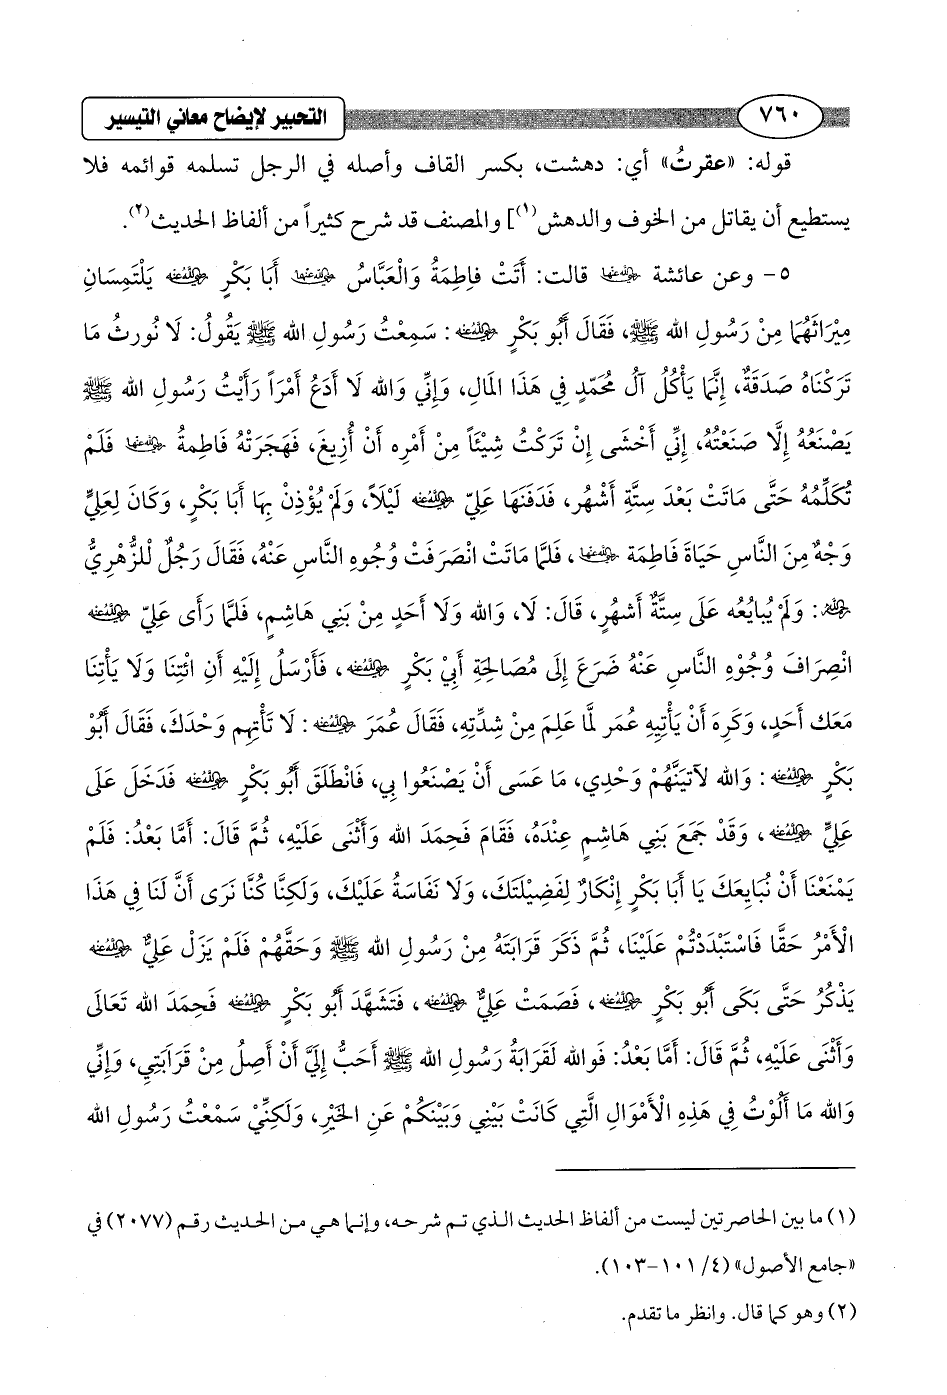 التحبير لإيضاح معاني التيسير ٧٦٠
قوله: «عقرتُ» أي: دهشت، بكسر القاف وأصله في الرجل تسلمه قوائمه فلا
يستطيع أن يقاتل من الخوف والدهش(١)] والمصنف قد شرح كثيراً من ألفاظ الحديث(٢).
٥- وعن عائشة رضي الله عنها قالت: أَتَتْ فاطِمَةُ وَالْعَبَّاسُ رضي الله عنهما أَبَا بَكْرٍ رضي الله عنه يَلْتَمِسَانِ
مِيْرَاثَهُمَا مِنْ رَسُولِ الله ﷺ، فَقَالَ أَبُو بَكْرٍ رضي الله عنه: سَمِعْتُ رَسُولَ الله ﷺ يَقُولُ: لَا نُورثُ مَا
تَرَكْنَاهُ صَدَقَةٌ، إِنَّمَا يَأْكُلُ آلُ مُحَمَّدٍ فِي هَذَا المَالِ، وَإِنِّي وَالله لَا أَدَعُ أَمْرَاً رَأَيْتُ رَسُولَ الله ﷺ
يَصْنَعُهُ إِلَّا صَنَعْتُهُ، إِنِّي أَخْشَى إِنْ تَرَكْتُ شِيْئَاً مِنْ أَمْرِه أَنْ أَزِيغَ، فَهَجَرَتْهُ فَاطِمَةُ رضي الله عنها فَلَمْ
تُكَلِّمُهُ حَتَّى مَاتَتْ بَعْدَ سِتَّةِ أَشْهُرِ، فَدَفَنَهَا عَلِيّ رضي الله عنه لَيْلَاً، وَلَمْ يُؤْذِنْ بِهَا أَبَا بَكْرٍ، وَكَانَ لِعَلِيٍّ
وَجْهٌ مِنَ النَّاسِ حَيَاةَ فَاطِمَة رضي الله عنها، فَلمَّا مَاتَتْ انْصَرَفَتْ وُجُوهِ النَّاس عَنْهُ، فَقَالَ رَجُلٌ لْلزُّهْرِيُّ
رحمه الله: وَلَمْ يُبايُعُه عَلَى سِتَّةٌ أَشهُرٍ، قَالَ: لَا، وَالله وَلَا أَحَدٍ مِنْ بَنِي هَاشِمٍ، فَلمَّا رَأَى عَلِيّ رضي الله عنه
انْصِرَافَ وُجُوْهِ النَّاسِ عَنْهُ ضَرَعَ إِلَى مُصَالِحَةِ أَبِيْ بَكْرٍ رضي الله عنه، فَأَرْسَلُ إِلَيْهِ أَنِ ائْتِنَا وَلَا يَأْتِنَا
مَعَك أَحَدٍ، وَكَرِهَ أَنْ يَأْتِيهِ عُمَر لمَّا عَلِمَ مِنْ شِدَّتِهِ، فَقَالَ عُمَرَ رضي الله عنه: لَا تَأْتِهِم وَحْدَكَ، فَقَالَ أَبُوْ
بَكْرٍ رضي الله عنه: وَالله لآتيَنَّهُمْ وَحْدِي، مَا عَسَى أَنْ يَصْنَعُوا بِي، فَانْطَلَقَ أَبُو بَكْرٍ رضي الله عنه فَدَخَلَ عَلَى
عَلِيٍّ رضي الله عنه، وَقَدْ جَمَعَ بَنِي هَاشِمٍ عِنْدَهُ، فَقَامَ فَحِمَدَ الله وَأَثْنَى عَلَيْهِ، ثُمَّ قَالَ: أَمَّا بَعْدُ: فَلَمْ
يَمْنَعْنَا أَنْ نُبَايِعَكَ يَا أَبَا بَكْرٍ إِنْكَارٌ لِفَضِيْلَتَكَ، وَلَا نَفَاسَةُ عَلَيْكَ، وَلَكِنَّا كُنَّا نَرَى أَنَّ لَنَا فِي هَذَا
الْأَمْرُ حَقَّا فَاسْتَبْدَدْتُمْ عَلَيْنَا، ثُمَّ ذَكَرَ قَرَابَتَهُ مِنْ رَسُولِ الله ﷺ وَحَقَّهُمْ فَلَمْ يَزَلْ عَلِيٌّ رضي الله عنه
يَذْكُرُ حَتَّى بَكَى أَبُو بَكْرٍ رضي الله عنه، فَصَمَتْ عَلِيٌّ رضي الله عنه، فَتَشَهَّدَ أَبُو بَكْرٍ رضي الله عنه فَحِمَدَ الله تَعَالَى
وَأَثْنَى عَلَيْهِ، ثُمَّ قَالَ: أَمَّا بَعْدُ: فَوالله لَقَرابَةُ رَسُولَ الله ﷺ أَحَبُّ إِلَيَّ أَنْ أَصِلُ مِنْ قَرَابَتِي، وَإِنِّي
وَالله مَا أَلَوْتُ فِي هَذِهِ الْأَمْوَالِ الَّتِي كَانَتْ بَيْنِي وَبَيْنَكُمْ عَنِ الخَيْرِ، وَلَكِنِّيْ سَمْعَتُ رَسُولِ الله
(١) ما بين الحاصرتين ليست من ألفاظ الحديث الذي تم شرحه، وإنما هي من الحديث رقم (٢٠٧٧) في
«جامع الأصول» (٤/ ١٠١-١٠٣).
(٢) وهو كما قال. وانظر ما تقدم.